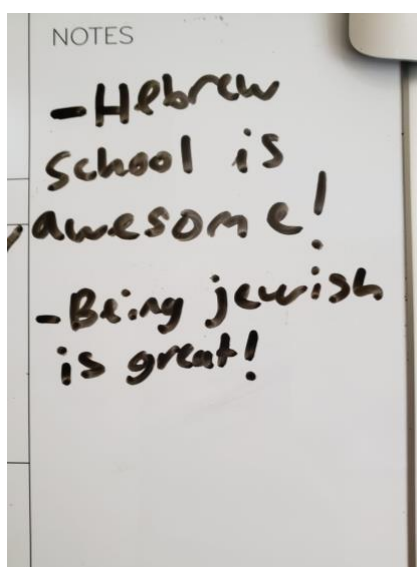 NOTES
-Hebrew
school is
awesome!
-Being jewish
is great!